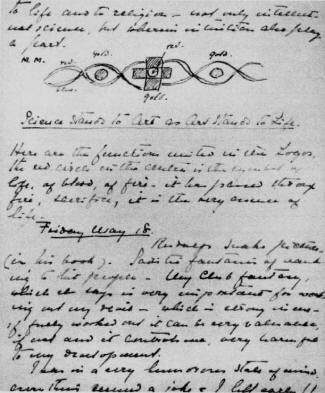 to life and to religion - not only intellect
not science, but wherein intuition also play
a part.
M.M. red. gold. red. gold.
blue. gold.
Science stands to Art as Art stands to Life.
Here are the functions united in the Logos,
the red circle in the center is the symbol of
life, of blood, of fire - it has passed through
fire, sacrifice, it is the very essence of
life.
Friday May 18.
(in his book). Said the fantasies of
ing to his people - My Club fantasy,
which he says is very important for work
ing out my devil - which is strong in us -
if finely worked out it can be very valuable,
if not and it controls me, very harmful
to my development.
I was in a very humorous state of mind,
everything seemed a joke - I left early !!